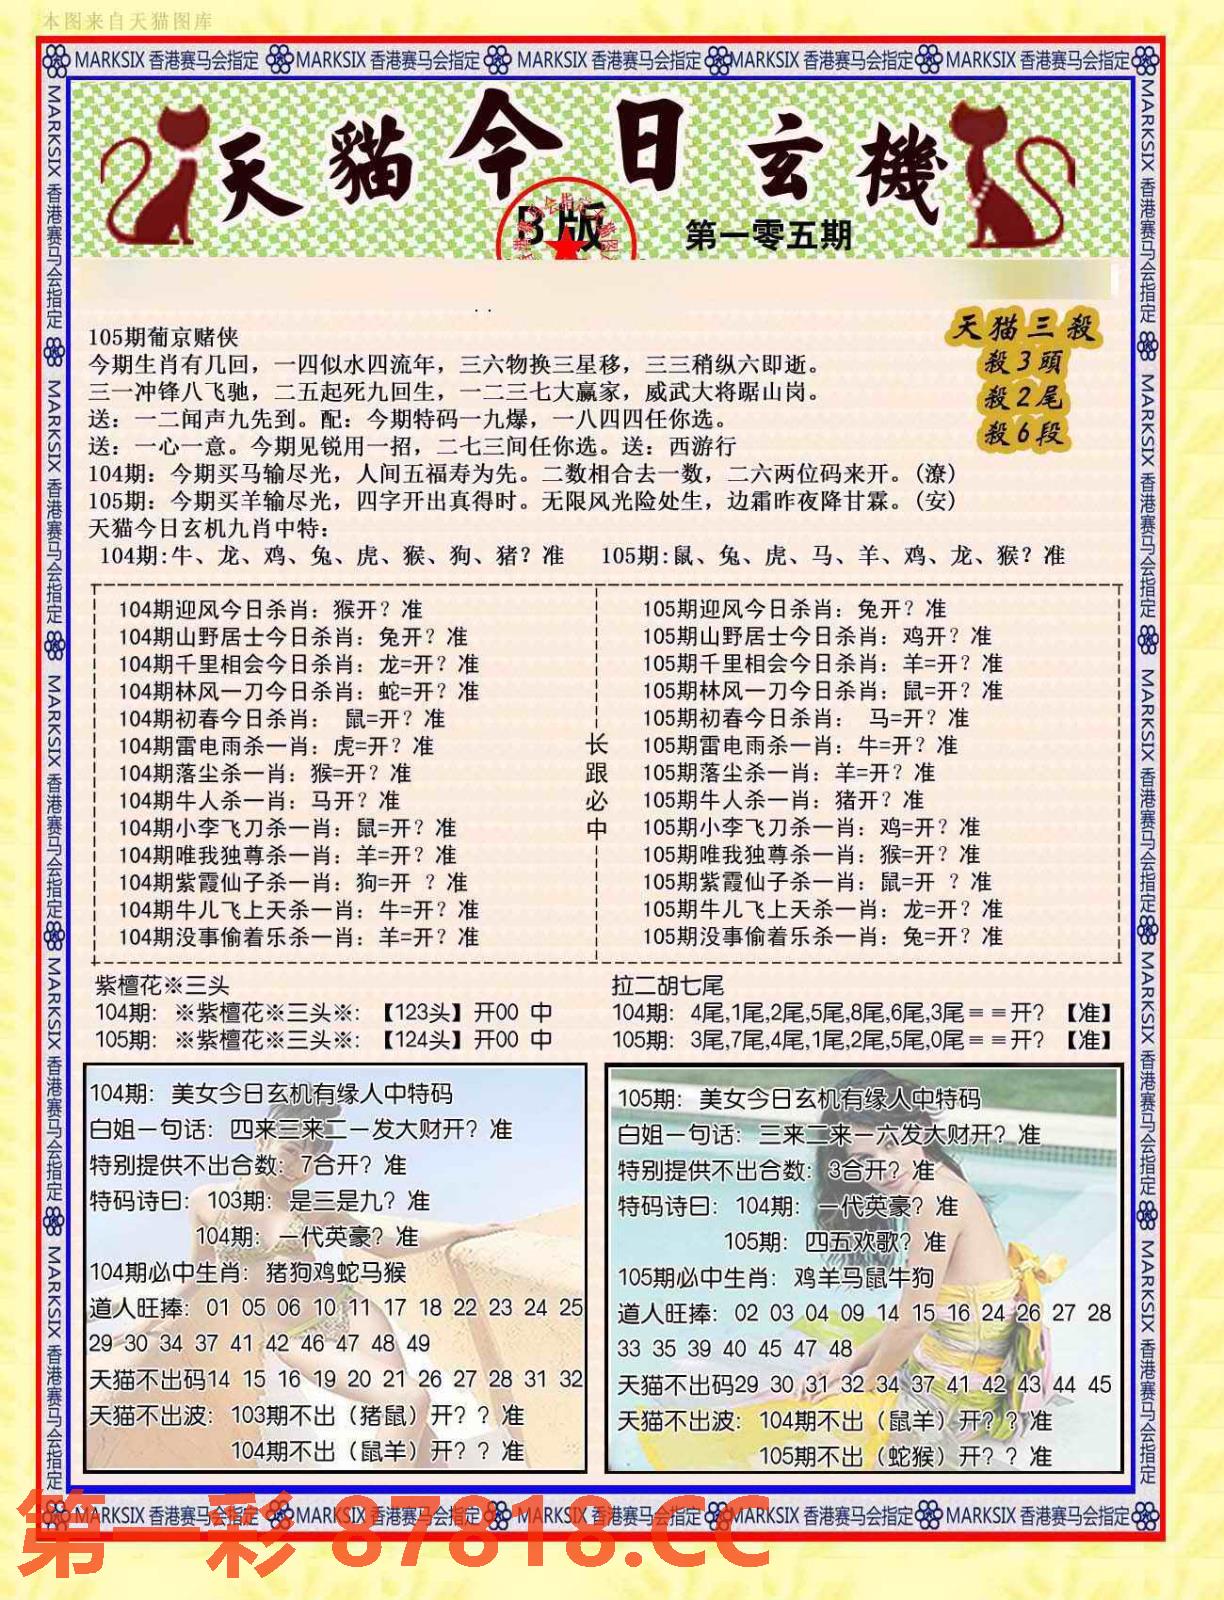 本图来自天猫图库
MARKSIX 香港赛马会指定 MARKSIX 香港赛马会指定 MARKSIX 香港赛马会指定 MARKSIX 香港赛马会指定 MARKSIX 香港赛马会指定
MARKSIX 香港赛马会指定 MARKSIX 香港赛马会指定 MARKSIX 香港赛马会指定 MARKSIX 香港赛马会指定 MARKSIX 香港赛马会指定
天貓今日玄機
B版
第一零五期
天猫三殺
殺3頭
殺2尾
殺6段
105期葡京赌侠
今期生肖有几回，一四似水四流年，三六物换三星移，三三稍纵六即逝。
三一冲锋八飞驰，二五起死九回生， 一二三七大赢家，威武大将踞山岗。
送：一二闻声九先到。配：今期特码一九爆，一八四四任你选。
送：一心一意。今期见锐用一招，二七三间任你选。送：西游行
104期：今期买马输尽光，人间五福寿为先。二数相合去一数，二六两位码来开。(潦)
105期：今期买羊输尽光，四字开出真得时。无限风光险处生，边霜昨夜降甘霖。(安)
天猫今日玄机九肖中特：
104期:牛、龙、鸡、兔、虎、猴、狗、猪？准 105期:鼠、兔、虎、马、羊、鸡、龙、猴？准
104期迎风今日杀肖：猴开？准
104期山野居士今日杀肖：兔开？准
104期千里相会今日杀肖：龙=开？准
104期林风一刀今日杀肖：蛇=开？准
104期初春今日杀肖： 鼠=开？准
104期雷电雨杀一肖：虎=开？准
104期落尘杀一肖：猴=开？准
104期牛人杀一肖：马开？准
104期小李飞刀杀一肖：鼠=开？准
104期唯我独尊杀一肖：羊=开？准
104期紫霞仙子杀一肖：狗=开 ？准
104期牛儿飞上天杀一肖：牛=开？准
104期没事偷着乐杀一肖：羊=开？准
长跟必中
105期迎风今日杀肖：兔开？准
105期山野居士今日杀肖：鸡开？准
105期千里相会今日杀肖：羊=开？准
105期林风一刀今日杀肖：鼠=开？准
105期初春今日杀肖： 马=开？准
105期雷电雨杀一肖：牛=开？准
105期落尘杀一肖：羊=开？准
105期牛人杀一肖：猪开？准
105期小李飞刀杀一肖：鸡=开？准
105期唯我独尊杀一肖：猴=开？准
105期紫霞仙子杀一肖：鼠=开 ？准
105期牛儿飞上天杀一肖：龙=开？准
105期没事偷着乐杀一肖：兔=开？准
紫檀花※三头
104期： ※紫檀花※三头※：【123头】开00 中
105期： ※紫檀花※三头※：【124头】开00 中
拉二胡七尾
104期： 4尾,1尾,2尾,5尾,8尾,6尾,3尾＝＝开？【准】
105期： 3尾,7尾,4尾,1尾,2尾,5尾,0尾＝＝开？【准】
104期：美女今日玄机有缘人中特码
白姐一句话：四来三来二一发大财开？准
特别提供不出合数：7合开？准
特码诗曰：103期：是三是九？准
104期：一代英豪？准
104期必中生肖：猪狗鸡蛇马猴
道人旺捧：01 05 06 10 11 17 18 22 23 24 25
29 30 34 37 41 42 46 47 48 49
天猫不出码14 15 16 19 20 21 26 27 28 31 32
天猫不出波：103期不出（猪鼠）开？？准
104期不出（鼠羊）开？？准
105期：美女今日玄机有缘人中特码
白姐一句话：三来二来一六发大财开？准
特别提供不出合数：3合开？准
特码诗曰：104期：一代英豪？准
105期：四五欢歌？准
105期必中生肖：鸡羊马鼠牛狗
道人旺捧：02 03 04 09 14 15 16 24 26 27 28
33 35 39 40 45 47 48
天猫不出码29 30 31 32 34 37 41 42 43 44 45
天猫不出波：104期不出（鼠羊）开？？准
105期不出（蛇猴）开？？准
MARKSIX 香港赛马会指定 MARKSIX 香港赛马会指定 MARKSIX 香港赛马会指定 MARKSIX 香港赛马会指定 MARKSIX 香港赛马会指定
MARKSIX 香港赛马会指定 MARKSIX 香港赛马会指定 MARKSIX 香港赛马会指定 MARKSIX 香港赛马会指定 MARKSIX 香港赛马会指定
第一彩 87818.CC